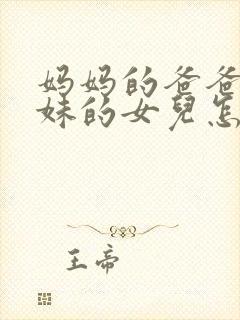 妈妈的爸爸
妹的女兒怎
王帝